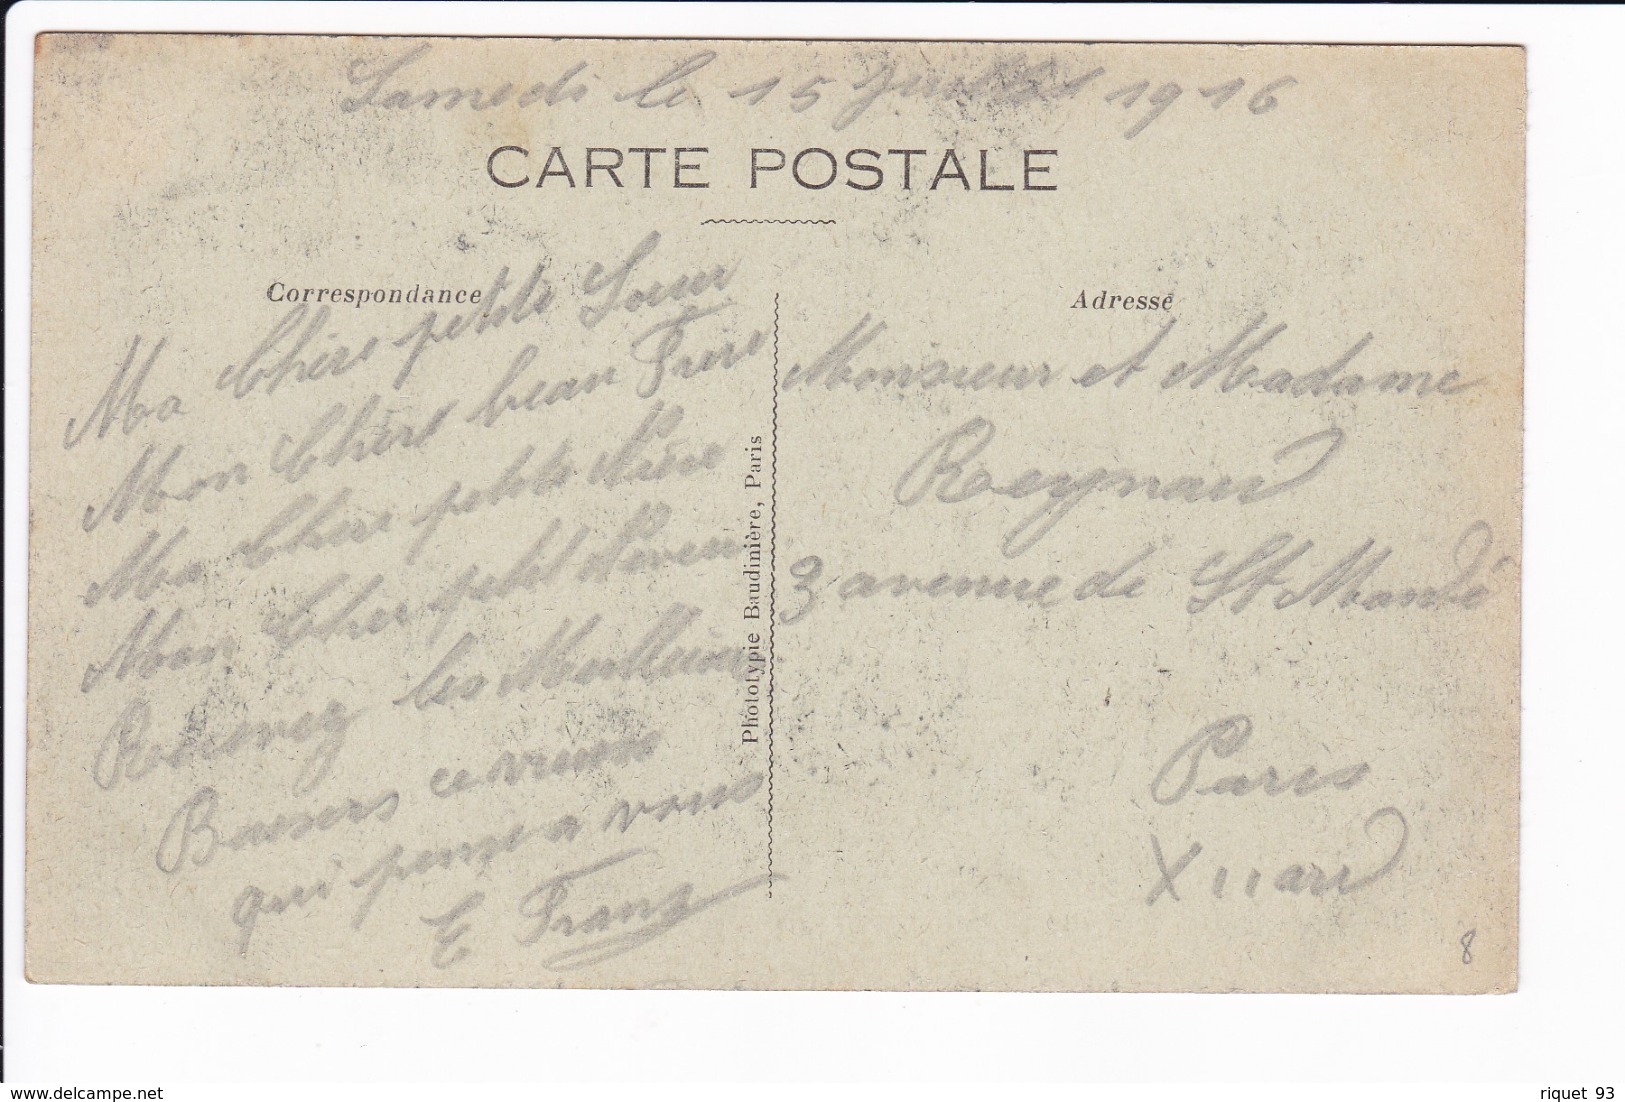 Samedi le 15 Juillet 1916
CARTE POSTALE
Correspondance
Ma Chère petite Sœur
Mon Cher beau Frère
Ma Chère petite Nièce
Mon Cher petit Neveu
Recevez les Meilleurs
Baisers ce
qui pense a vous
E Franz
Phototypie Baudinière, Paris
Adresse
Monsieur et Madame
Reynaud
3 avenue de St Mandé
Paris
XII ard
8
riquet 93